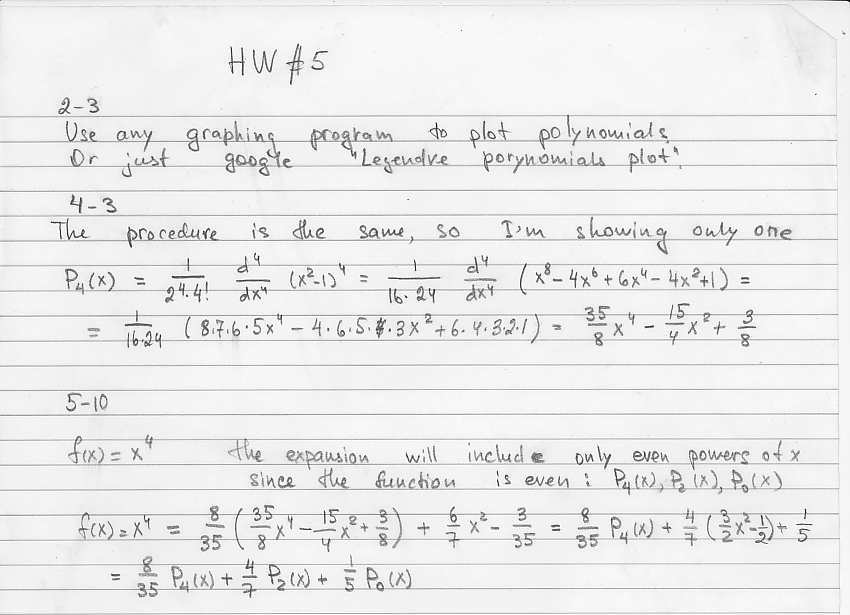 HW #5
2-3
Use any graphing program to plot polynomials.
Or just google "Legendre porynomials plot".
4-3
The procedure is the same, so I'm showing only one
P₄(x) = 1/(2⁴·4!) d⁴/dx⁴ (x²-1)⁴ = 1/(16·24) d⁴/dx⁴ (x⁸ - 4x⁶ + 6x⁴ - 4x² + 1) =
= 1/(16·24) (8·7·6·5x⁴ - 4·6·5·4·3x² + 6·4·3·2·1) = 35/8 x⁴ - 15/4 x² + 3/8
5-10
f(x) = x⁴ the expansion will include only even powers of x
since the function is even: P₄(x), P₂(x), P₀(x)
f(x) = x⁴ = 8/35 (35/8 x⁴ - 15/4 x² + 3/8) + 6/7 x² - 3/35 = 8/35 P₄(x) + 4/7 (3/2 x² - 1/2) + 1/5
= 8/35 P₄(x) + 4/7 P₂(x) + 1/5 P₀(x)